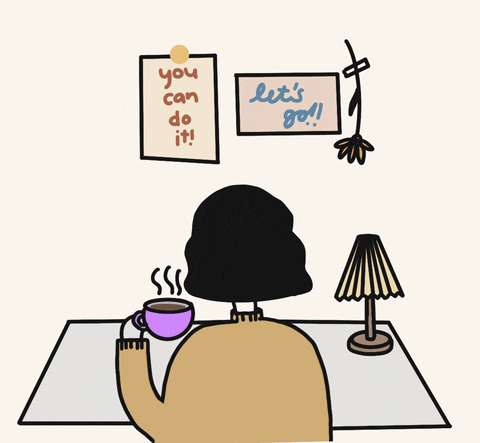 you
can
do
it!
let's
go!!